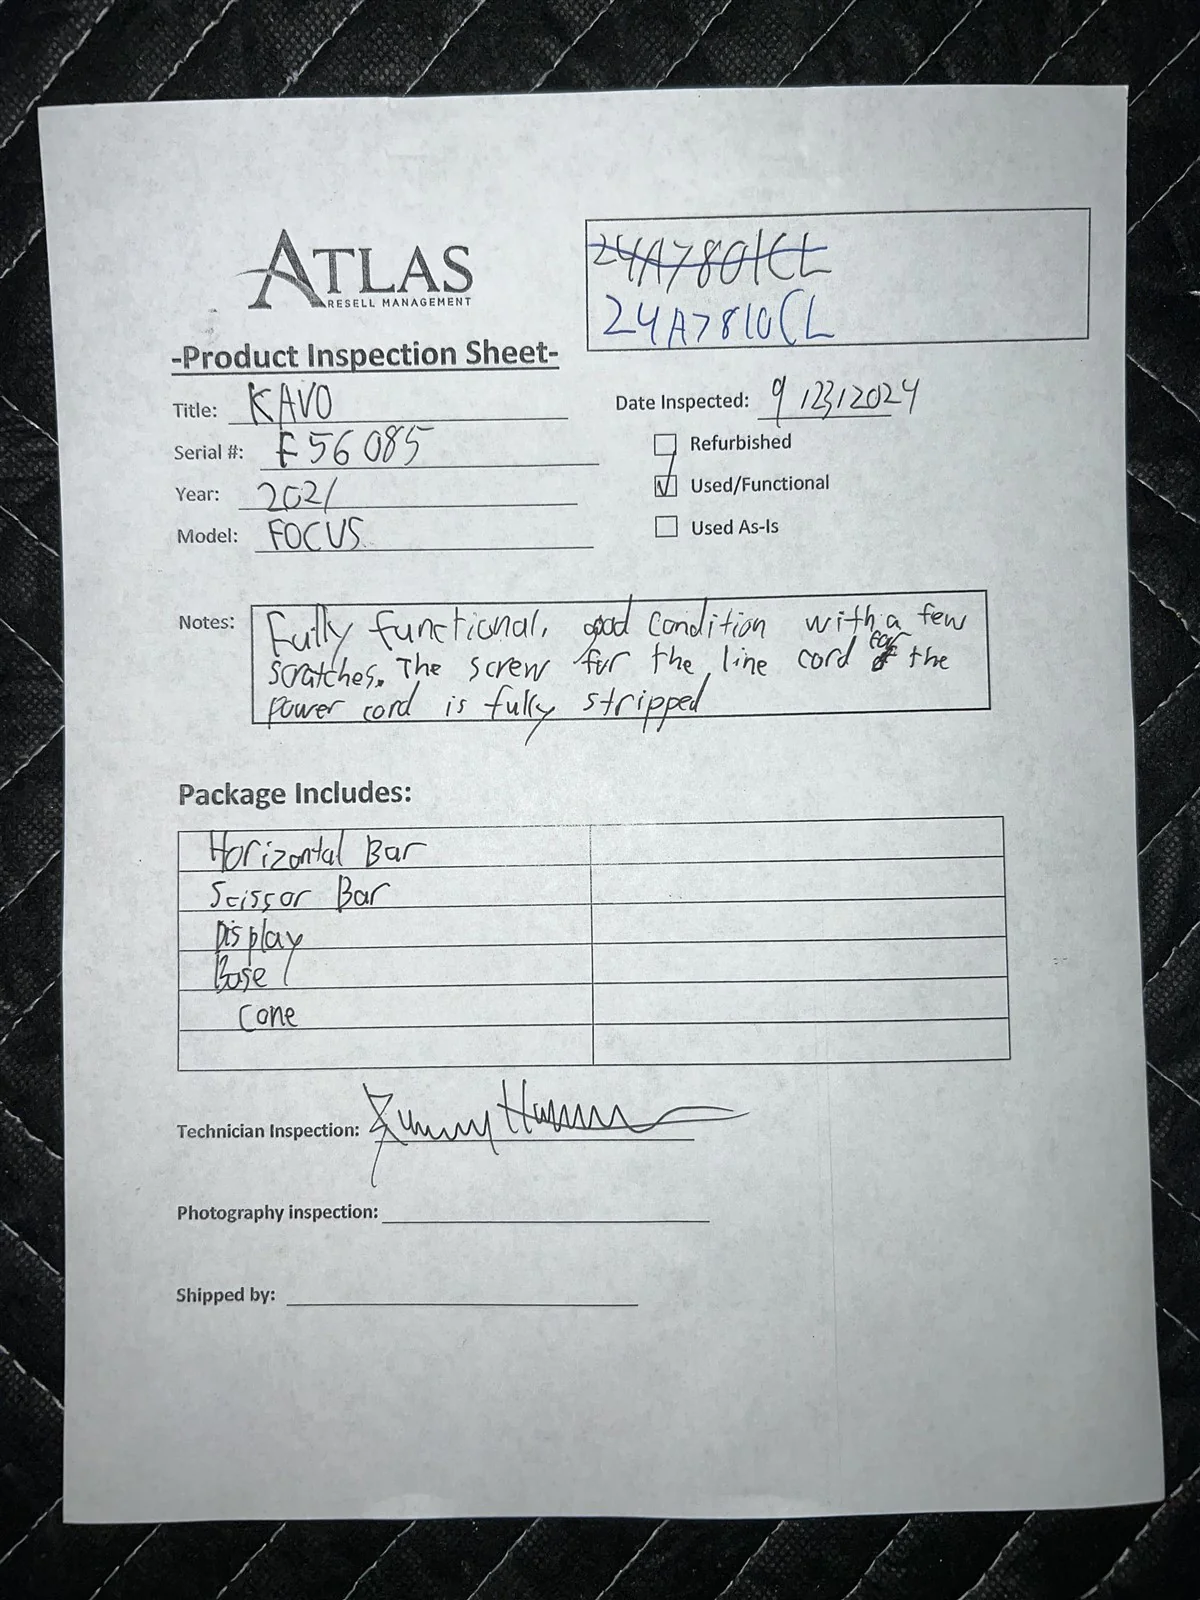 ATLAS
RESELL MANAGEMENT
24A7801CL
24A7810CL
-Product Inspection Sheet-
Title: KAVO
Date Inspected: 9/23/2024
Serial #: F56085
Refurbished
Year: 2021
Used/Functional
Model: FOCUS
Used As-Is
Notes: Fully functional, good condition with a few
scratches. The screw for the line cord for the
power cord is fully stripped
Package Includes:
Horizontal Bar
Scissor Bar
Display
Base
Cone
Technician Inspection:
Photography inspection:
Shipped by: